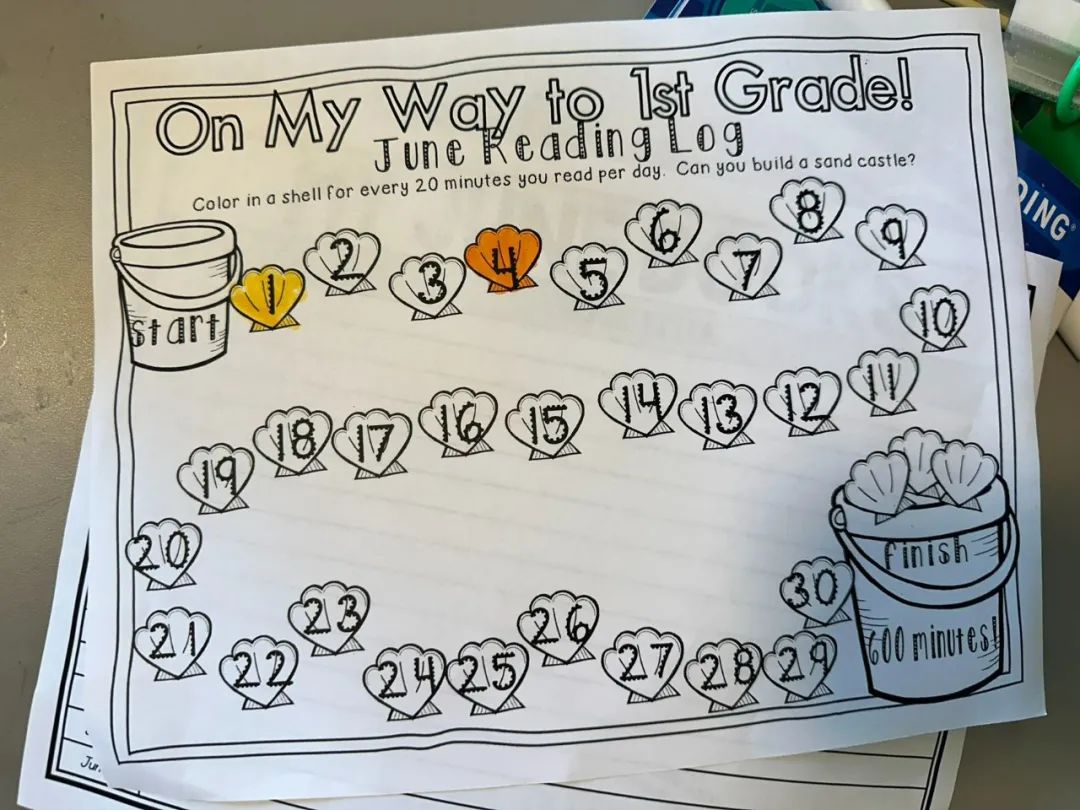 On My Way to 1st Grade!
June Reading Log
Color in a shell for every 20 minutes you read per day. Can you build a sand castle?
start
1
2
3
4
5
6
7
8
9
10
11
12
13
14
15
16
17
18
19
20
21
22
23
24
25
26
27
28
29
30
finish
600 minutes!
DING®